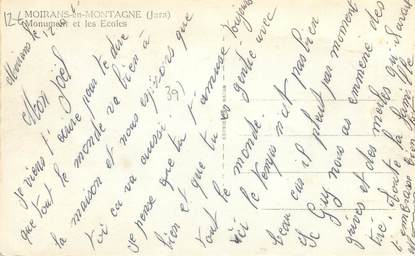 MOIRANS-en-MONTAGNE (Jura)
Monument et les Ecoles
Moirans le 12
39
Mon Joël
je viens t'écrire pour te dire
que tout le monde va bien à
la maison et nous espérons que
toi ca va aussi
je pense que tu t'amuse toujours
bien et que tu es gentil avec
tout le monde.
ici le temps n'ait pas bien
beau car il pleut par moment
Guy nous as emmené des
grives et des merles qu'
tiré. toute la famille
t'embrasse